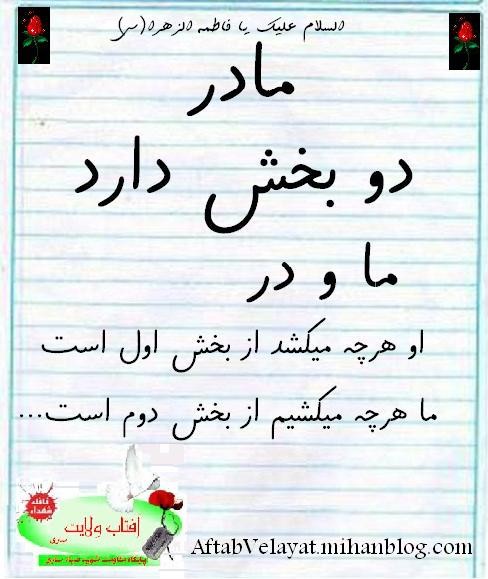 السلام علیک یا فاطمه الزهرا(س)
مادر
دو بخش دارد
ما و در
او هرچه میکشد از بخش اول است
ما هرچه میکشیم از بخش دوم است...
قافله شهداء
آفتاب ولایت
ساری
AftabVelayat.mihanblog.com